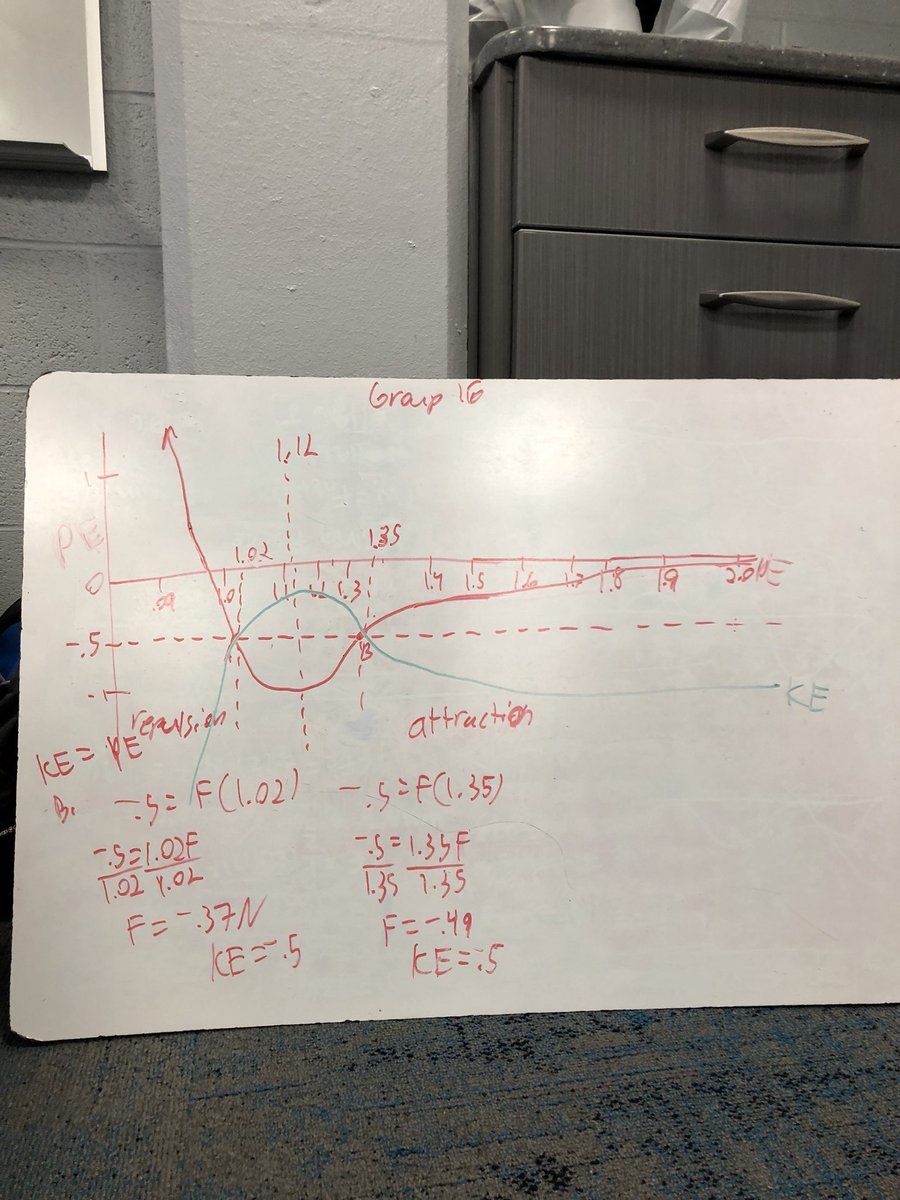 Group 16
1.12
1
PE
1.02
1.35
0
.99
1.0
1.1
1.2
1.3
1.4
1.5
1.6
1.7
1.8
1.9
2.0
-.5
B
-1
KE
repulsion
attraction
KE = PE
B.
-.5 = F(1.02)
-.5 = F(1.35)
-.5 = 1.02F
1.02 1.02
-.5 = 1.35F
1.35 1.35
F = -.37N
F = -.49
KE = -.5
KE = -.5